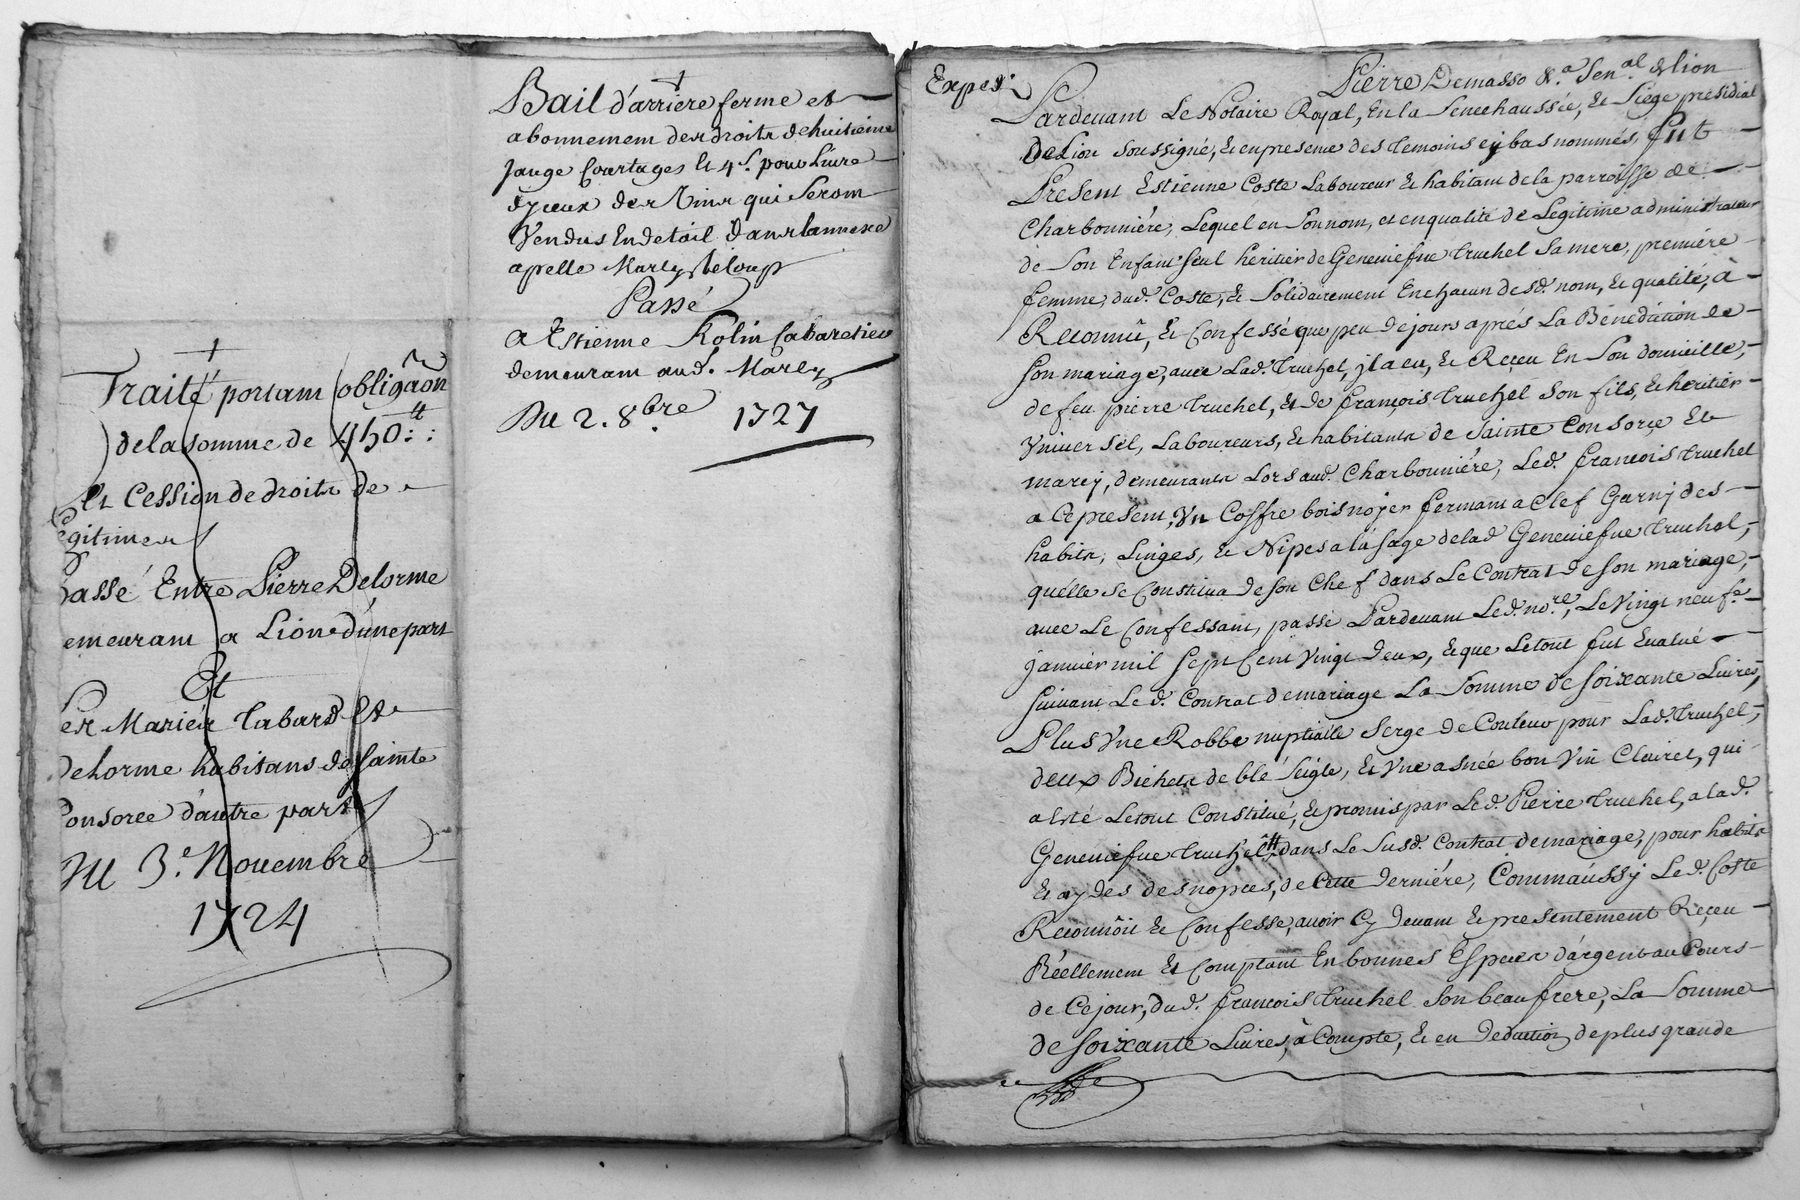 Traité portant obligãon
de la somme de 450tt::
Et Cession de droits de
egitimes
passé Entre Pierre Delorme
emeurant a Lion d'une part
Et
Les Mariés Tabard Et
Delorme habitans de sainte
Consorce d'autre part
Du 3.e Novembre
1724
Bail d'arriere ferme et
abonnement des droits de huitieme
Jauge Courtages et 4.s pour Livre
d'yceux des Vins qui seront
Vendus En detail dans lannexe
apelle Marcy le loup
Passé
a Estienne Rolin Cabaretier
demeurant aud. Marcy
Du 2. 8bre 1727
Exped.
Pierre Demasso &.a Sen.al d Lion
Pardevant Le Notaire Royal, En la Senechaussée, & Siege presidial
De Lion soussigné, & en presence des temoins cy bas nommés, fut
Present Estienne Coste Laboureur & habitant de la parroisse de
Charbonniére, Lequel en son nom, et en qualité de Legitime administrateur
de son Enfant seul héritier de Geneviefve truchet sa mere, premiére
femme, dud. Coste, & solidairement En chacun desd. nom, & qualité, à
Reconnû, & Confessé que peu de jours aprés La Bénédiction de
son mariage, avec Lad. truchet, jl a eu, & Reçeu En Son domicille,
de feu pierre truchet, & de françois truchet son fils, & heritier
Vniversel, Laboureurs, & habitants de Sainte Consorçe Et
marcy, demeurants Lors aud. Charbonniére, Led. françois truchet
a Ce present, Vn Coffre bois noyer fermant a Clef Garny des
habits, Linges, & Nipes a lusage de lad Geneviefve truchet,
quélle se Constitua de son Chef dans Le Contrat de son mariage,
avec Le Confessant, passé Pardevant Led. no.re, Le Vingt neufe
janvier mil sept Cent Vingt deux, & que Le tout fut Evalué
suivant Le d. Contrat de mariage La Somme de soixante Livres,
Plus Vne Robbe nuptialle Serge de Couleur pour Lad. truchet,
deux Bichets de blé seigle, & Vne asnée bon Vin Clairet, qui
a esté Le tout Constitué, & promis par Led. Pierre truchet, a lad.
Geneviefve truchet dans Le Susd. Contrat de mariage, pour habits
Et aydes des nopces, de Cette derniére, Comme aussÿ Led. Coste
Reconnoît & Confesse, avoir Cy devant & presentement Reçeu
Réellement Et Comptant En bonnes Especes d'argent au Cours
de Ce jour, dud. françois truchet son beau frere, La Somme
de soixante Livres, à Compte, & en Deduction de plus grande